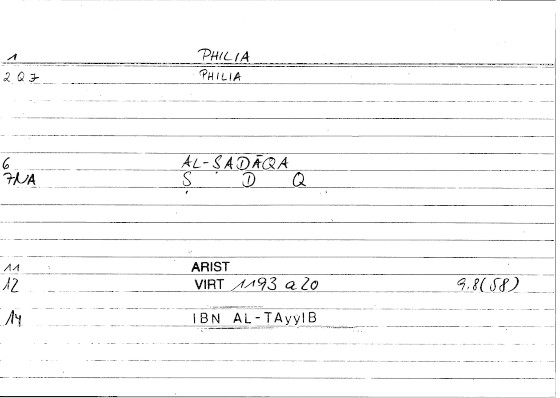 1 PHILIA
2 Q 7 PHILIA
6 AL-ṢADĀQA
7NA Ṣ D Q
11 ARIST
12 VIRT 1193 a 20 9.8(58)
14 IBN AL-TAyyIB